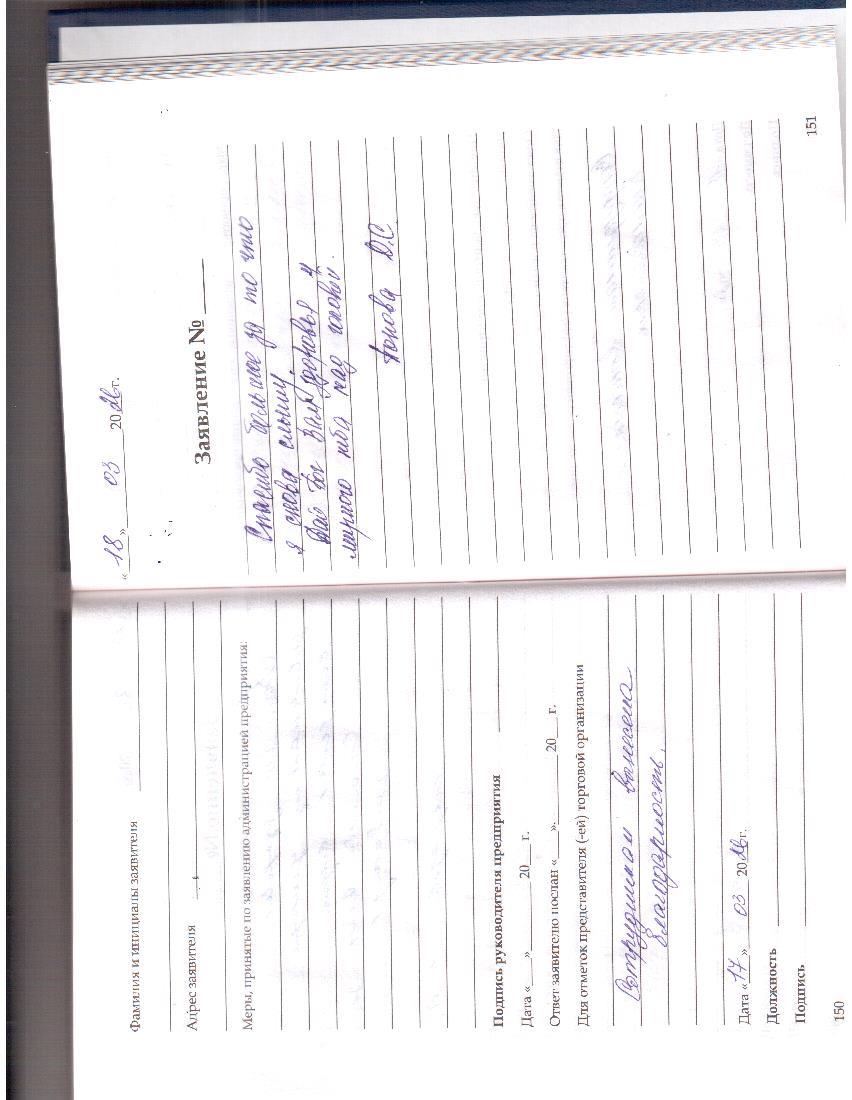 Фамилия и инициалы заявителя
Адрес заявителя
Меры, принятые по заявлению администрацией предприятия:
Подпись руководителя предприятия
Дата «___»________20___г.
Ответ заявителю послан «___».________20___г.
Для отметок представителя (-ей) торговой организации
Сотрудникам вынесена
благодарность.
Дата «17» 03 2026г.
Должность
Подпись
150
«18» 03 2026г.
Заявление № ____
Спасибо большое за то что
я снова слышу
Дай Бог Вам здоровья и
мирного неба над головой.
Д.С
151